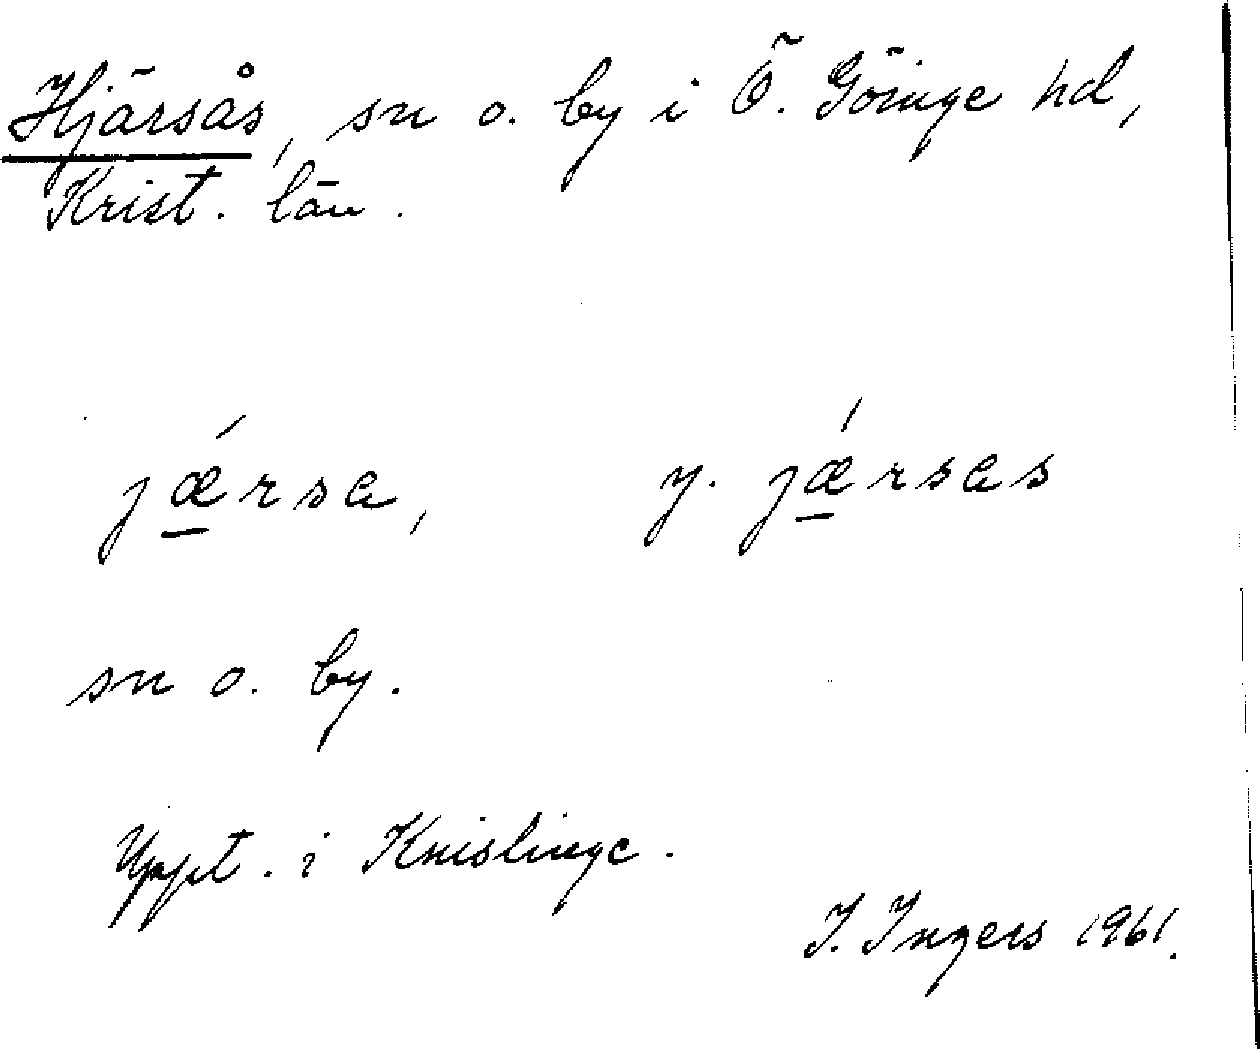 Hjärsås, sn o. by i Ö. Göinge hd,
Krist. län.
jǽ̲rsa, y. jǽ̲rsas
sn o. by.
Uppt. i Knislinge.
I. Ingers 1961.